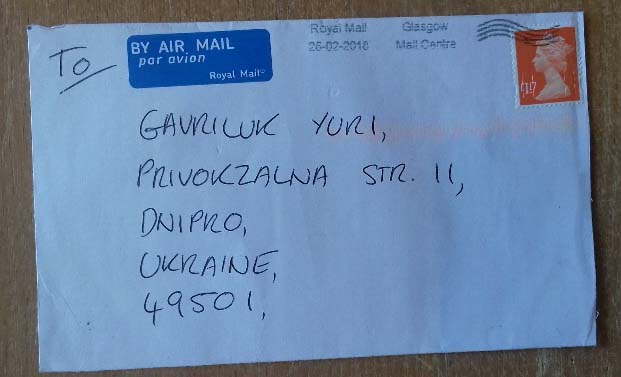 To
BY AIR MAIL
par avion
Royal Mail
Royal Mail Glasgow
26-02-2018 Mail Centre
GAVRILUK YURI,
PRIVOKZALNA STR. 11,
DNIPRO,
UKRAINE,
49501,